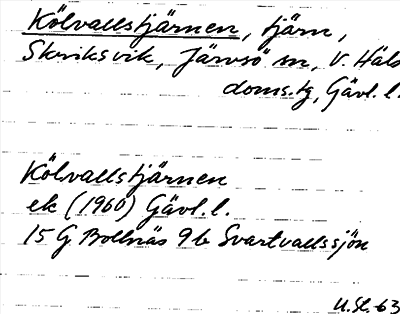 Kölvallstjärnen, tjärn,
Skriksvik, Järvsö sn, V. Häls
doms.tg, Gävl. l.
Kölvallstjärnen
ek (1960) Gävl. l.
15 G Bollnäs 9 b Svartvallssjön
U.Sl. -63